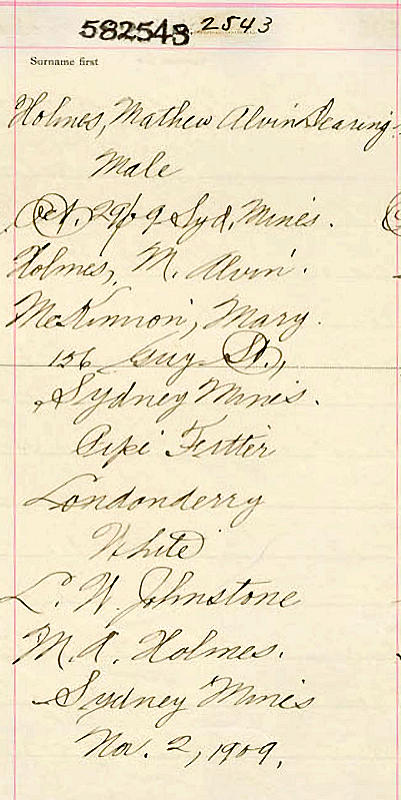 582543 2543
Surname first
Holmes, Mathew Alvin Dearing
Male
Oct. 29/09 Syd. Mines.
Holmes, M. Alvin.
McKinnon, Mary.
156 Guy St.,
Sydney Mines.
Pipe Fitter
Londonderry
White
L. W. Johnstone
M. A. Holmes.
Sydney Mines
Nov. 2, 1909.